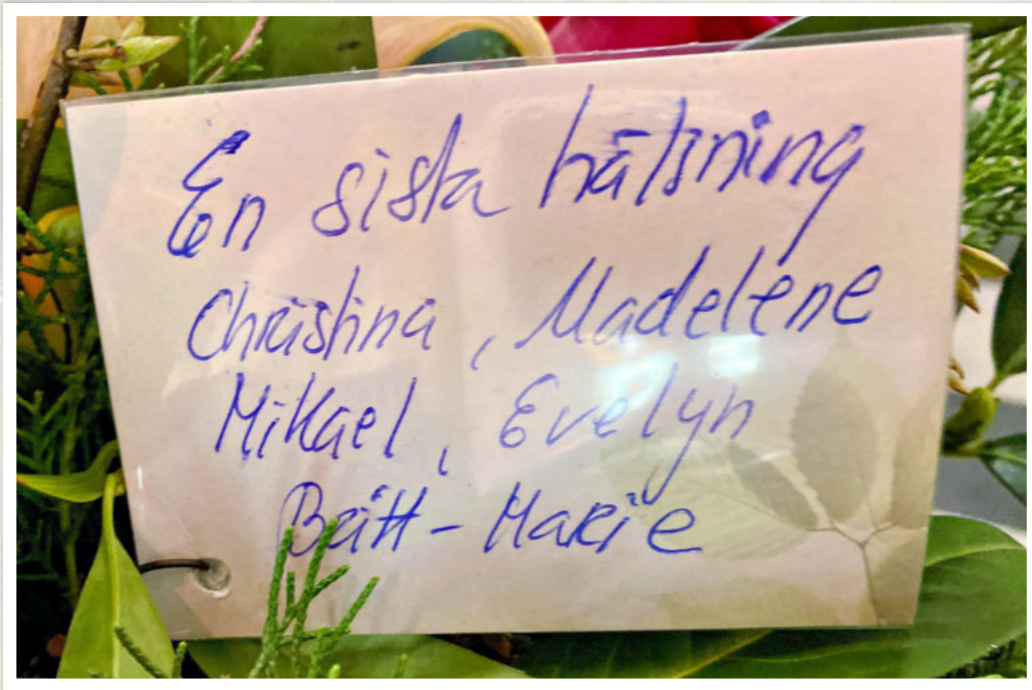 En sista hälsning
Christina, Madelene
Mikael, Evelyn
Britt-Marie